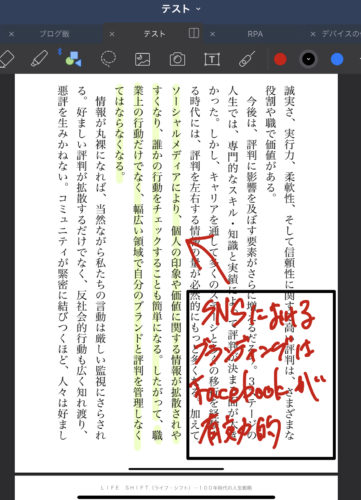 テスト
ブログ飯
テスト
RPA
デバイスの
誠実さ、実行力、柔軟性、そして信頼性に関する 評判は、さまざまな
役割や職で価値がある。
今後は、評判に影響を及ぼす要素がさらに増 3 テージの
人生では、専門的なスキル・知識と実績 評判 決ま 面が
かった。しかし、キャリアを通して多くのス 移行を経
る時代には、評判を左右する情 量が必然的にもっと多く 加えて
ソーシャルメディアにより、個人の印象や価値に関する情報が拡散されや
すくなり、誰かの行動をチェックすることも簡単になる。したがって、職
業上の行動だけでなく、幅広い領域で自分のブランドと評判を管理しなく
てはならなくなる。
情報が丸裸になれば、当然ながら私たちの言動は厳しい監視にさらされ
る。好ましい評判が拡散するだけでなく、反社会的行動も広く知れ渡り、
悪評を生みかねない。コミュニティが緊密に結びつくほど、人々は好まし
SNSにおける
ブランディングは
Facebookが
有効的
LIFE SHIFT(ライフ・シフト)―100年時代の人生戦略